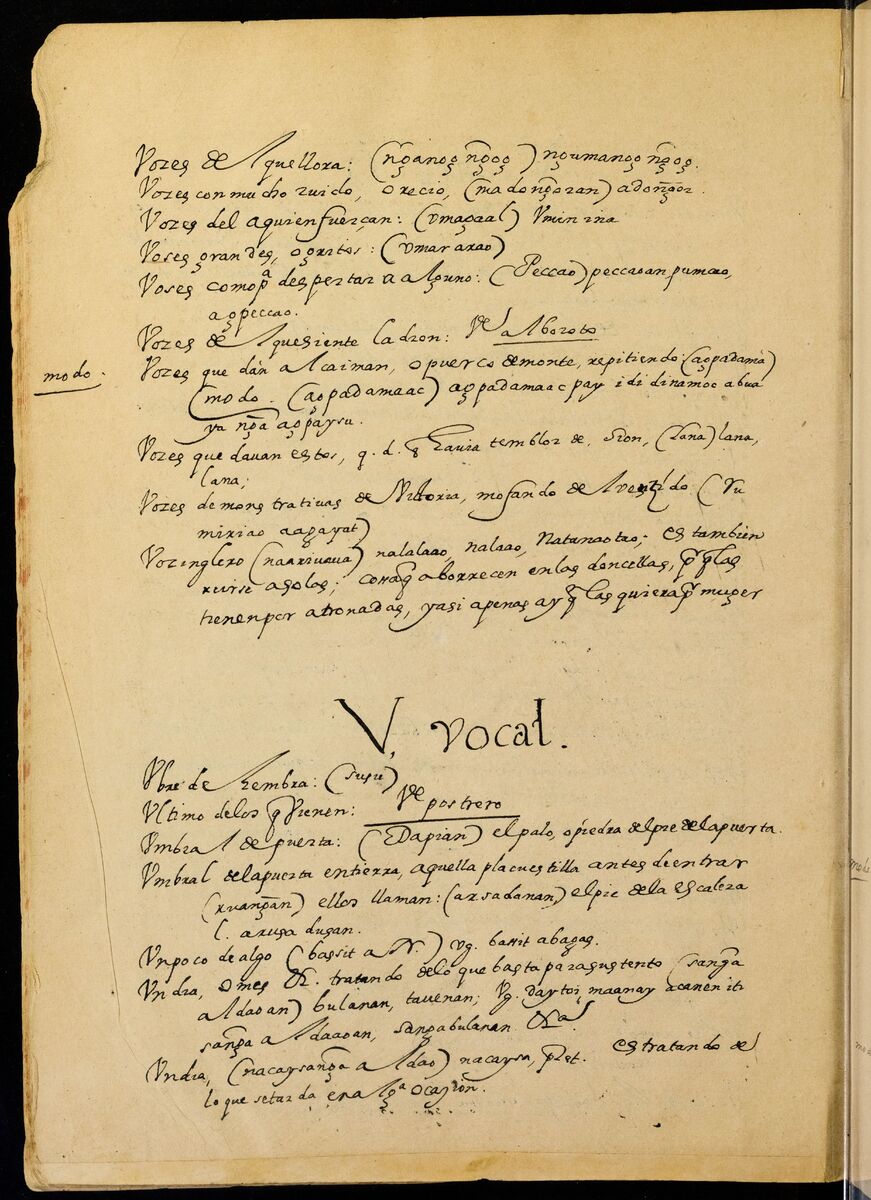 Vozes de Aquellora: (ng̃anog ng̃og) ngumanog ng̃og.
Vozes con mucho ruido, o recio, (nadong̃oran) adong̃or.
Vozes del a quien fuerçan: (vmagaal) vminina
Voses grandes, o gritos: (vmaraxao)
Voses como pª despertar a alguno: (Peccao) peccaoan, pumcao,
agpeccao.
Vozes de Aquesiente ladron: Vᵉ alboroto
modo.
Vozes que dán al caiman, o puerco de monte, repitiendo: (agpadamà)
(modo. (agpadamaac) agpadamaac pay idi dinamoc abua
ya ng̃a agpaysu.
Vozes que davan estos, q. d. havia temblor de. Sion, (lana) lana,
lana;
Vozes demonstrativas de Victoria, mofando de Avenzido (Vu
miriao aagayat)
Vozinglero (naarivava) nalalaao, nalaao, Natanaotao; es tambien
reirse a solas; cossa q̃ aborrecen en las doncellas, p̃ q̃ las
tienen por atronadas, y asi apenas ay q̃ las quiera p̃ muger
V, vocal.
Vbre de hembra: (susu)
Vltimo de los q̃ vienen: Vᵉ postrero
Vmbral de puerta: (Dapian) el palo, o piedra del pie de la puerta.
Vmbral de la puerta en tierra, aquella placuestilla antes de entrar
(ruang̃an) ellos llaman: (arsadanan,) el pie de la escalera
l. arusa dugan.
Vn poco de algo (bassit a N.) vg. bassit abagas.
Vn dia, o mes &. tratando de lo que basta para sustento (sang̃a
aldaoan) bulanan, tauenan; vg. daytoi, maanay acanen iti
sang̃a aldaoan, sangabulanan. &ª
Vn dia, (nacaysang̃a aldao) nacaysa, p̃et. es tratando de
lo que se tarda en alg.ª ocasion.